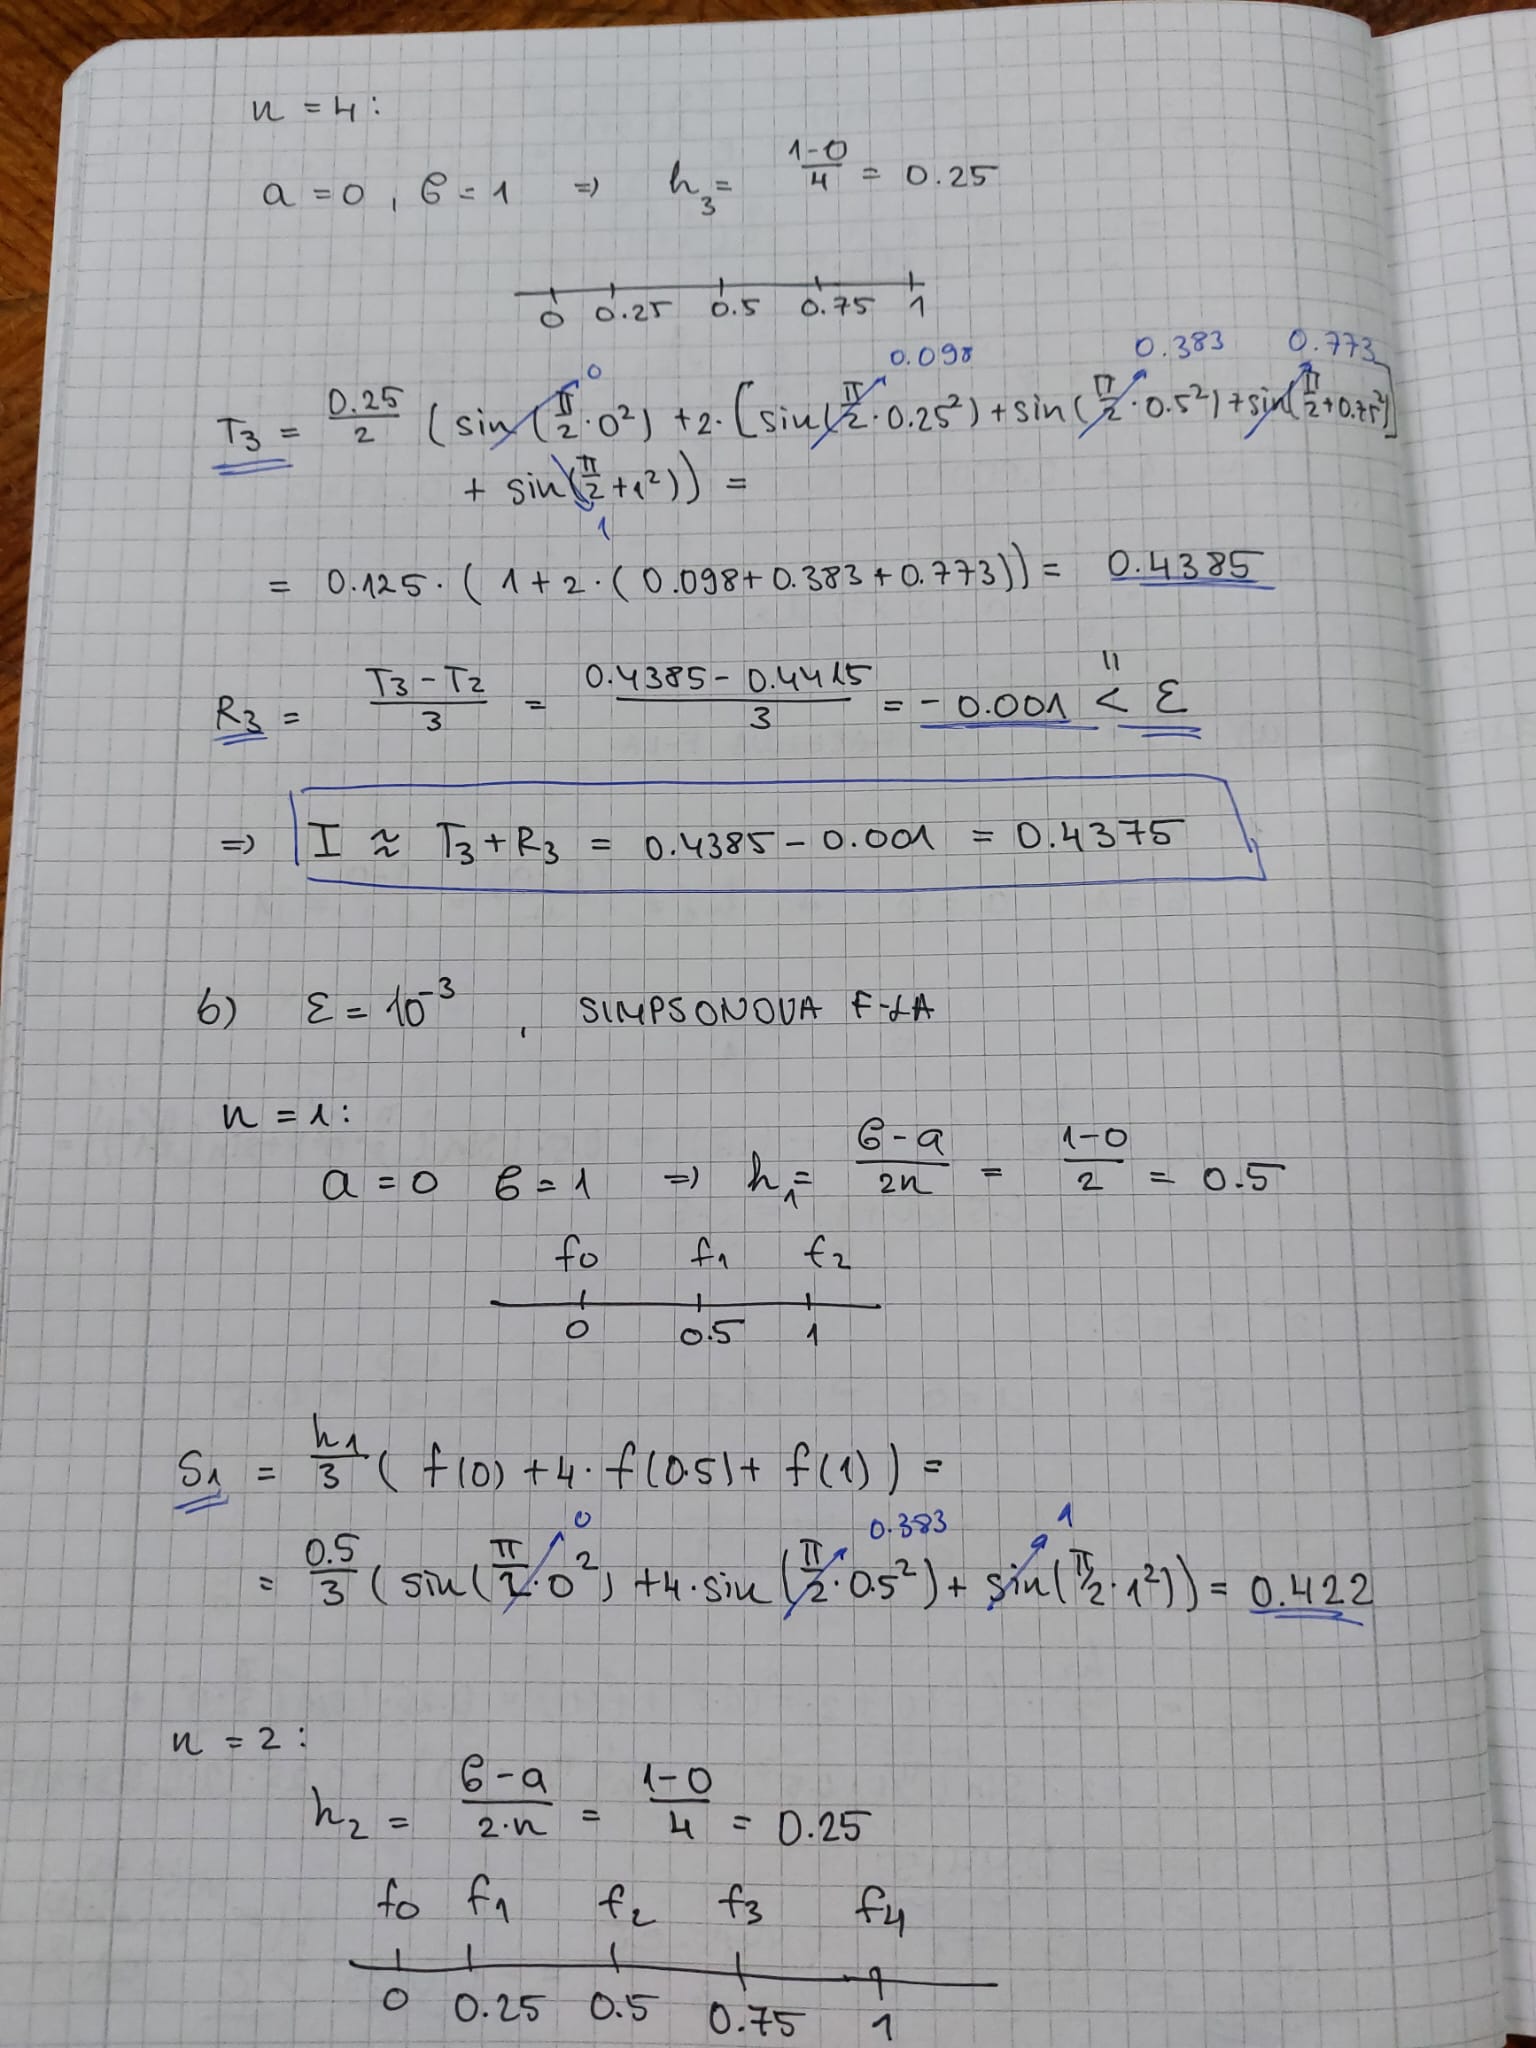 n = 4 :
a = 0 , b = 1 => h₃ = (1-0)/4 = 0.25
0 0.25 0.5 0.75 1
0 0.098 0.383 0.773
T₃ = 0.25/2 ( sin ( π/2 · 0² ) + 2 · [ sin ( π/2 · 0.25² ) + sin ( π/2 · 0.5² ) + sin ( π/2 + 0.75² ) ]
+ sin ( π/2 + 1² ) ) =
1
= 0.125 · ( 1 + 2 · ( 0.098 + 0.383 + 0.773 ) ) = 0.4385
R₃ = (T₃ - T₂)/3 = (0.4385 - 0.4415)/3 = - 0.001 < ε
=> I ≈ T₃ + R₃ = 0.4385 - 0.001 = 0.4375
b) ε = 10⁻³ , SIMPSONOVA F-LA
n = 1 :
a = 0 b = 1 => h₁ = (b - a)/2n = (1-0)/2 = 0.5
f₀ f₁ f₂
0 0.5 1
S₁ = h₁/3 ( f(0) + 4 · f(0.5) + f(1) ) =
0 0.383 1
= 0.5/3 ( sin ( π/2 · 0² ) + 4 · sin ( π/2 · 0.5² ) + sin ( π/2 · 1² ) ) = 0.422
n = 2 :
h₂ = (b - a)/2·n = (1-0)/4 = 0.25
f₀ f₁ f₂ f₃ f₄
0 0.25 0.5 0.75 1